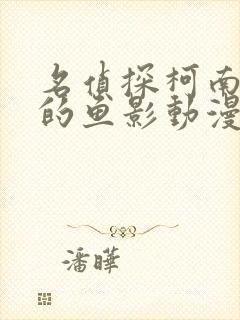 名侦探柯南
的鱼影動漫
潘曄